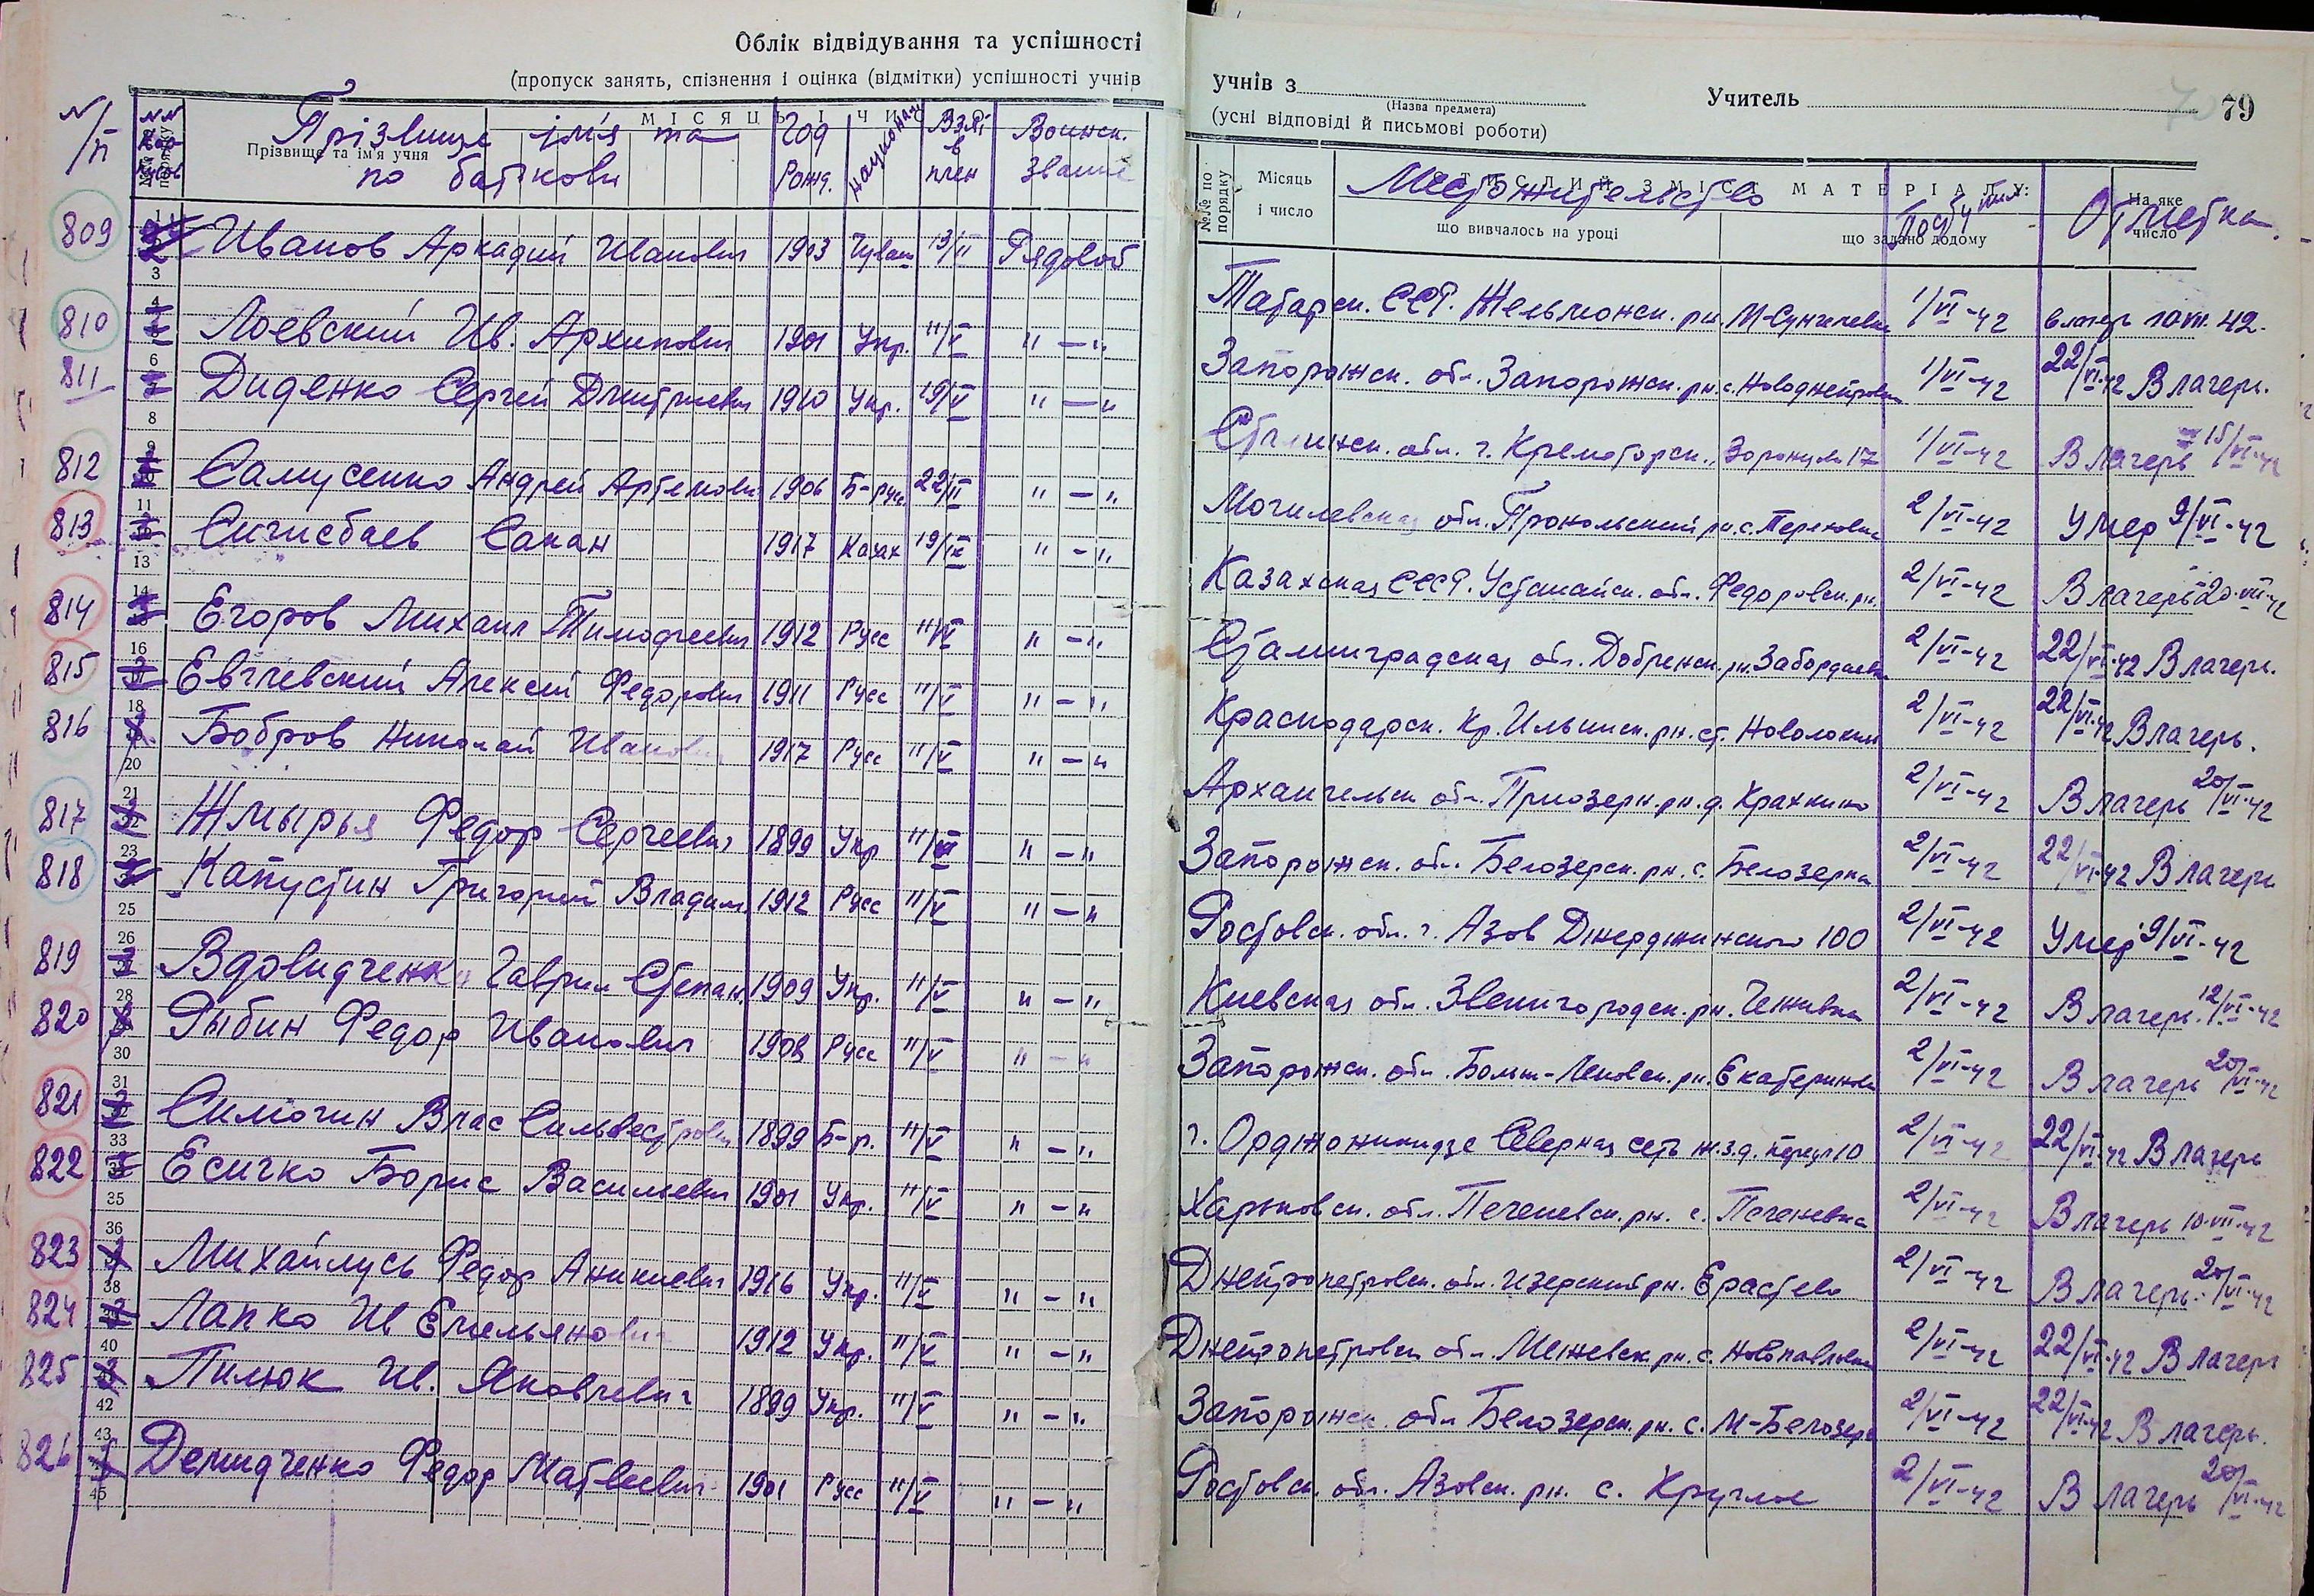 Облік відвідування та успішності
(пропуск занять, спізнення і оцінка (відмітки) успішності учнів
учнів з Учитель 79
(Назва предмета)
(усні відповіді й письмові роботи)
N/п NN МІСЯЦЬ І ЧИС
Прізвище ім'я та по батькови Год Рожд. национал Взят в плен Воинск. звание
Прізвище та ім'я учня
№№ по порядку Місяць і число СТИСЛИЙ ЗМІСТ МАТЕРІАЛУ: На яке число
Местожительство Поступил: Отметка.
що вивчалось на уроці що задано додому
809 Иванов Аркадий Иванович 1903 Чуваш 13/II Рядовой Татарск. ССР. 1/VI-42 в лагерь 10 VII. 42.
810 Лоевский Ив. Архипович 1901 Укр. 11/V "-" Запорожск. обл. Запорожск. рн. 1/VI-42 22/VI-42 В лагерь.
811 Диденко Сергей Дмитриевич 1910 Укр. 19/V "-" обл. г. Крематорск., 17 1/VI-42 В лагерь 15/VI-42
812 Самусенко Андрей Артемович 1906 Б-русс 22/II "-" Могилевская обл. рн. с. 2/VI-42 Умер 9/VI-42
813 Сигисбаев Сакан 1917 Казах 19/IX "-" Казахская ССР. обл. Федоровск. рн. 2/VI-42 В лагерь 20-VII-42
814 Егоров Михаил Тимофеевич 1912 Русс 11/V "-" Сталинградская обл. рн. 2/VI-42 22/VI-42 В лагерь.
815 Евглевский Алексей Федорович 1911 Русс 11/V "-" Краснодарск. Кр. рн. ст. 2/VI-42 22/VI-42 В лагерь.
816 Бобров Николай Иванович 1917 Русс 11/V "-" Архангельск обл. Приозерн. рн. д. 2/VI-42 В лагерь 20/VI-42
817 Жмырья Федор Сергеевич 1899 Укр "-" Запорожск. обл. Белозерск. рн. с. Белозерка 2/VI-42 22/VI-42 В лагерь
818 Капустин Григорий Владим. 1912 Русс 11/V "-" Ростовск. обл. г. Азов Дзержинского 100 2/VI-42 Умер 9/VI-42
819 Вдовидченко Гаврил Степан. 1909 Укр. 11/V "-" Киевская обл. Звенигородск. рн. 2/VI-42 В лагерь. 12/VI-42
820 Рыбин Федор Иванович 1908 Русс 11/V "-" Запорожск. обл. рн. 2/VI-42 В лагерь 20/VI-42
821 Симогин Влас Сильвестрович 1899 Б-р. 11/V "-" г. Орджоникидзе Северная 10 2/VI-42 22/VI-42 В лагерь
822 Есичко Борис Васильевич 1901 Укр. 11/V "-" Харьковск. обл. Печеневск. рн. с. Печеневка 2/VI-42 В лагерь 10-VII-42
823 Михайлусь Федор Аникиевич 1916 Укр. 11/V "-" Днепропетровск. обл. рн. 2/VI-42 В лагерь. 20/VI-42
824 Лапко Ив Емельянович 1912 Укр. 11/V "-" Днепропетровск обл. Межевск. рн. с. 2/VI-42 22/VI-42 В лагерь
825 Пилюк Ив. Яковлевич 1899 Укр. 11/V "-" Запорожск. обл Белозерск. рн. с. М-Белозерк 2/VI-42 22/VI-42 В лагерь.
826 Демидченко Федор Матвеевич 1901 Русс 11/V "-" Ростовск. обл. Азовск. рн. с. Круглое 2/VI-42 В лагерь 20/VI-42